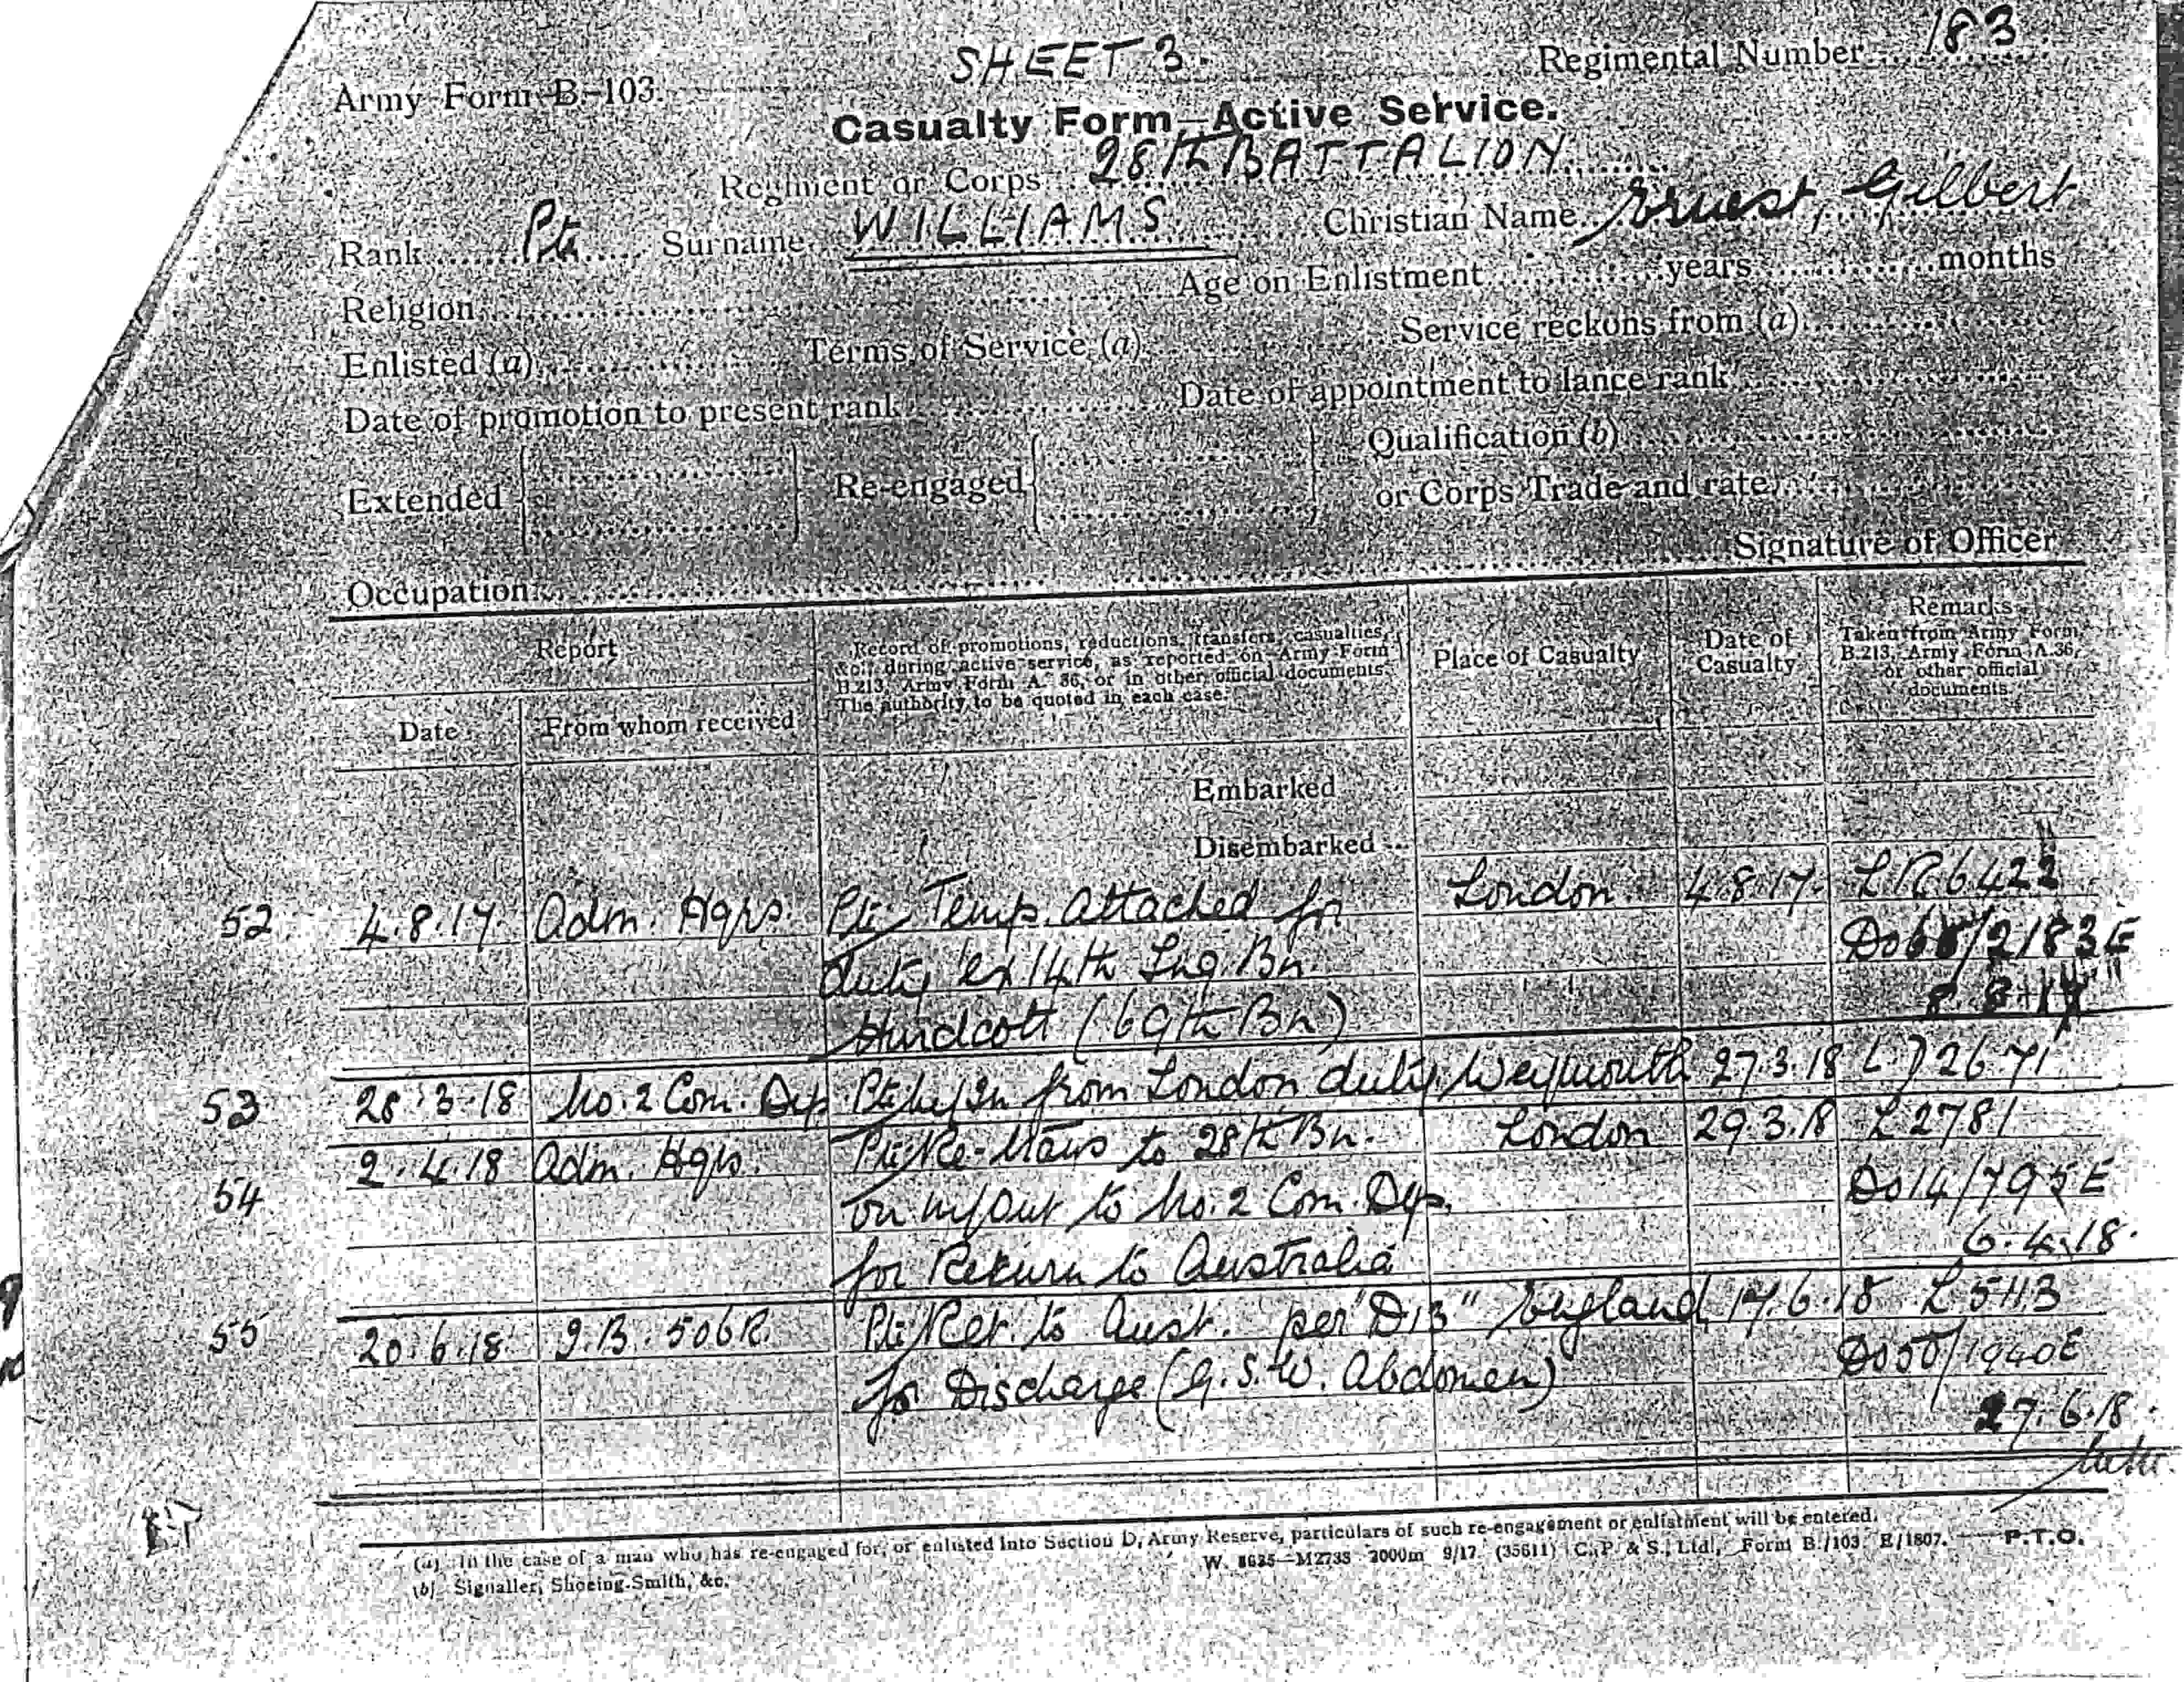 SHEET 3.
Regimental Number 183.
Army Form B.-103.
Casualty Form—Active Service.
Regiment or Corps 28th BATTALION
Rank Pte Surname WILLIAMS Christian Name Ernest Gilbert
Religion Age on Enlistment years months
Enlisted (a) Terms of Service (a) Service reckons from (a)
Date of promotion to present rank Date of appointment to lance rank
Extended Re-engaged Qualification (b)
or Corps Trade and rate
Signature of Officer
Occupation
Report
Date From whom received
Record of promotions, reductions, transfers, casualties,
&c., during active service, as reported on Army Form
B.213, Army Form A. 36, or in other official documents.
The authority to be quoted in each case.
Place of Casualty
Date of
Casualty
Remarks
Taken from Army Form
B.213, Army Form A.36,
or other official
documents.
Embarked
Disembarked ...
52. 4.8.17. Adm. Hqrs. Pte Temp. attached for London. 4.8.17. 6422
duty ex 14th Trg. Bn. Do68/2183E
Hurdcott (69th Bn) 8.8.17
53 28.3.18 No. 2 Com. Dep. Pte M/In from London duty. Weymouth 27.3.18 2671
54 2.4.18 Adm. Hqrs. Pte Re-trans to 28th Bn. London 29.3.18 L2781
on m/out to No. 2 Com. Dep. Do14/795E
for Return to Australia 6.4.18.
55 20.6.18. J.B. 506R. Pte Ret. to Aust. per "D13" England 17.6.18 L5113
for Discharge (G.S.W. Abdomen) Do50/1940E
27.6.18.
(a) In the case of a man who has re-engaged for, or enlisted into Section D, Army Reserve, particulars of such re-engagement or enlistment will be entered.
(b) Signaller, Shoeing-Smith, &c. W. 8625—M2733 2000m 9/17 (35611) C., P. & S., Ltd., Form B./103 E/1807. P.T.O.